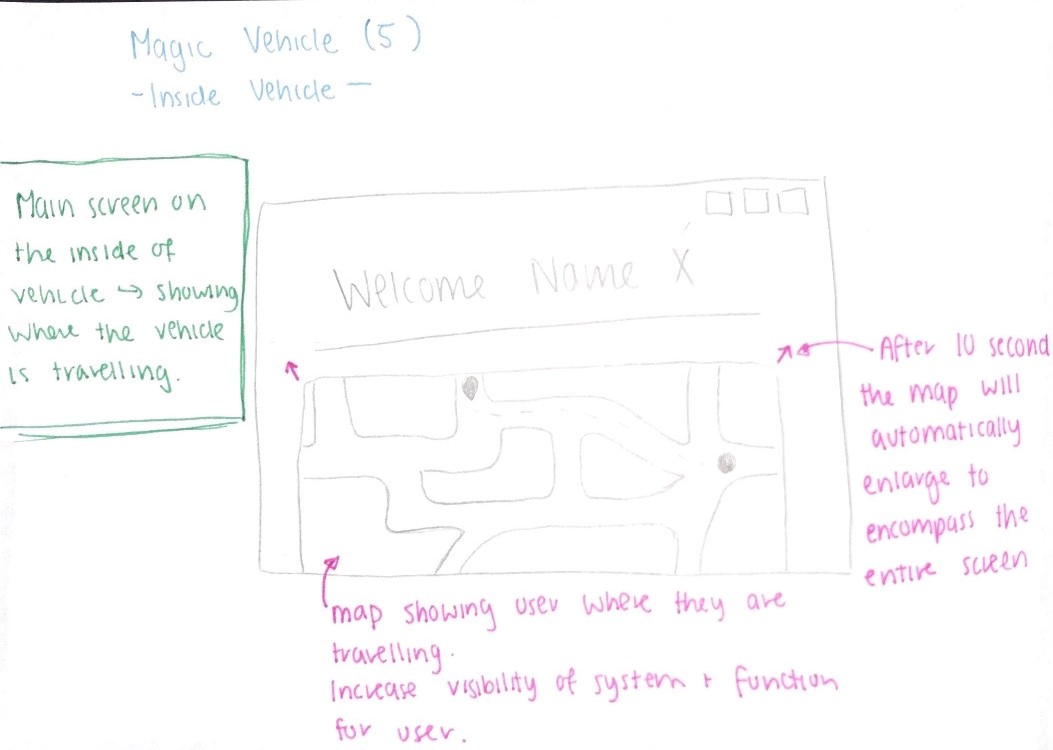 Magic Vehicle (5)
- Inside Vehicle -
Main screen on
the inside of
vehicle ↪ showing
where the vehicle
is travelling.
Welcome Name X
After 10 second
the map will
automatically
enlarge to
encompass the
entire screen
map showing user where they are
travelling.
Increase visibility of system + function
for user.